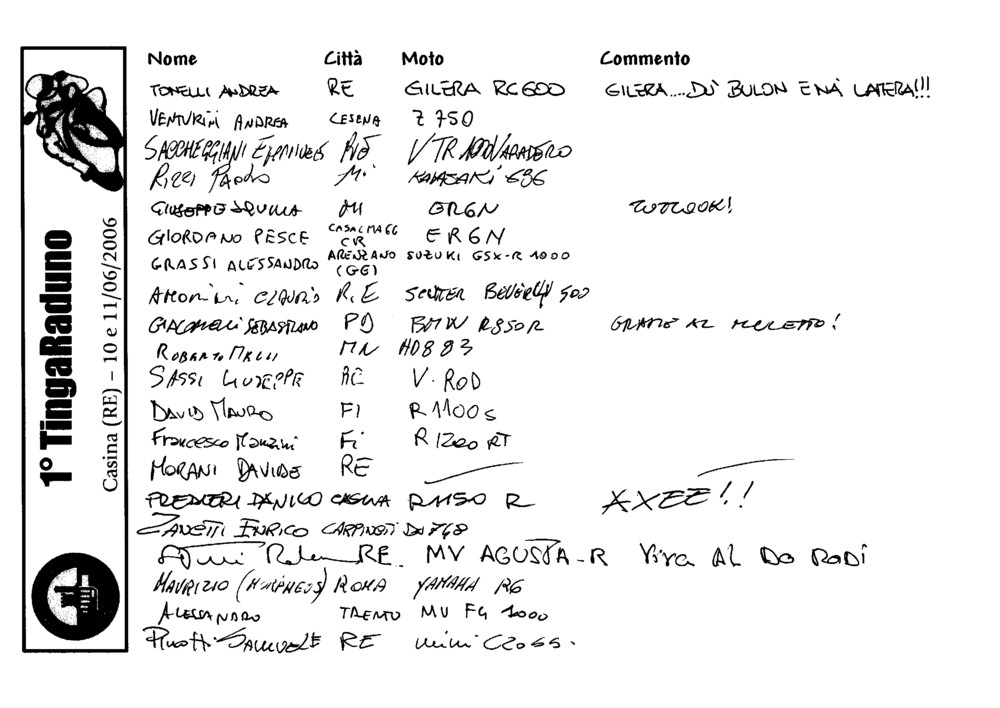 1° TingaRaduno
Casina (RE) – 10 e 11/06/2006
Nome Città Moto Commento
TONELLI ANDREA RE GILERA RC600 GILERA....DÜ BULON E NÀ LATERA!!!
VENTURINI ANDREA CESENA Z 750
SACCHEGGIANI RE VTR 1000 VARADERO
RIZZI PAOLO Mi KAWASAKI 636
GIUSEPPE MI ER6N
GIORDANO PESCE CASALMAGG CR ER6N
GRASSI ALESSANDRO ARENZANO (GE) SUZUKI GSX-R 1000
CLAUDIO R.E SCUTER BEVERLY 500
SEBASTIANO PD BMW R850R GRAZIE AL !
ROBERTO MN HD883
SASSI GIUSEPPE RE V-ROD
DAVID MAURO FI R1100S
Francesco Manzini Fi R1200 RT
MORANI DAVIDE RE
DANILO CASINA R1150 R AXEE!!
ZANETTI ENRICO CARPINETI 748
RE. MV AGUSTA-R Viva AL DO RODI
MAURIZIO (MORPHEUS) ROMA YAMAHA R6
ALESSANDRO TRENTO MV F4 1000
Pinotti SAMUELE RE mini CROSS.